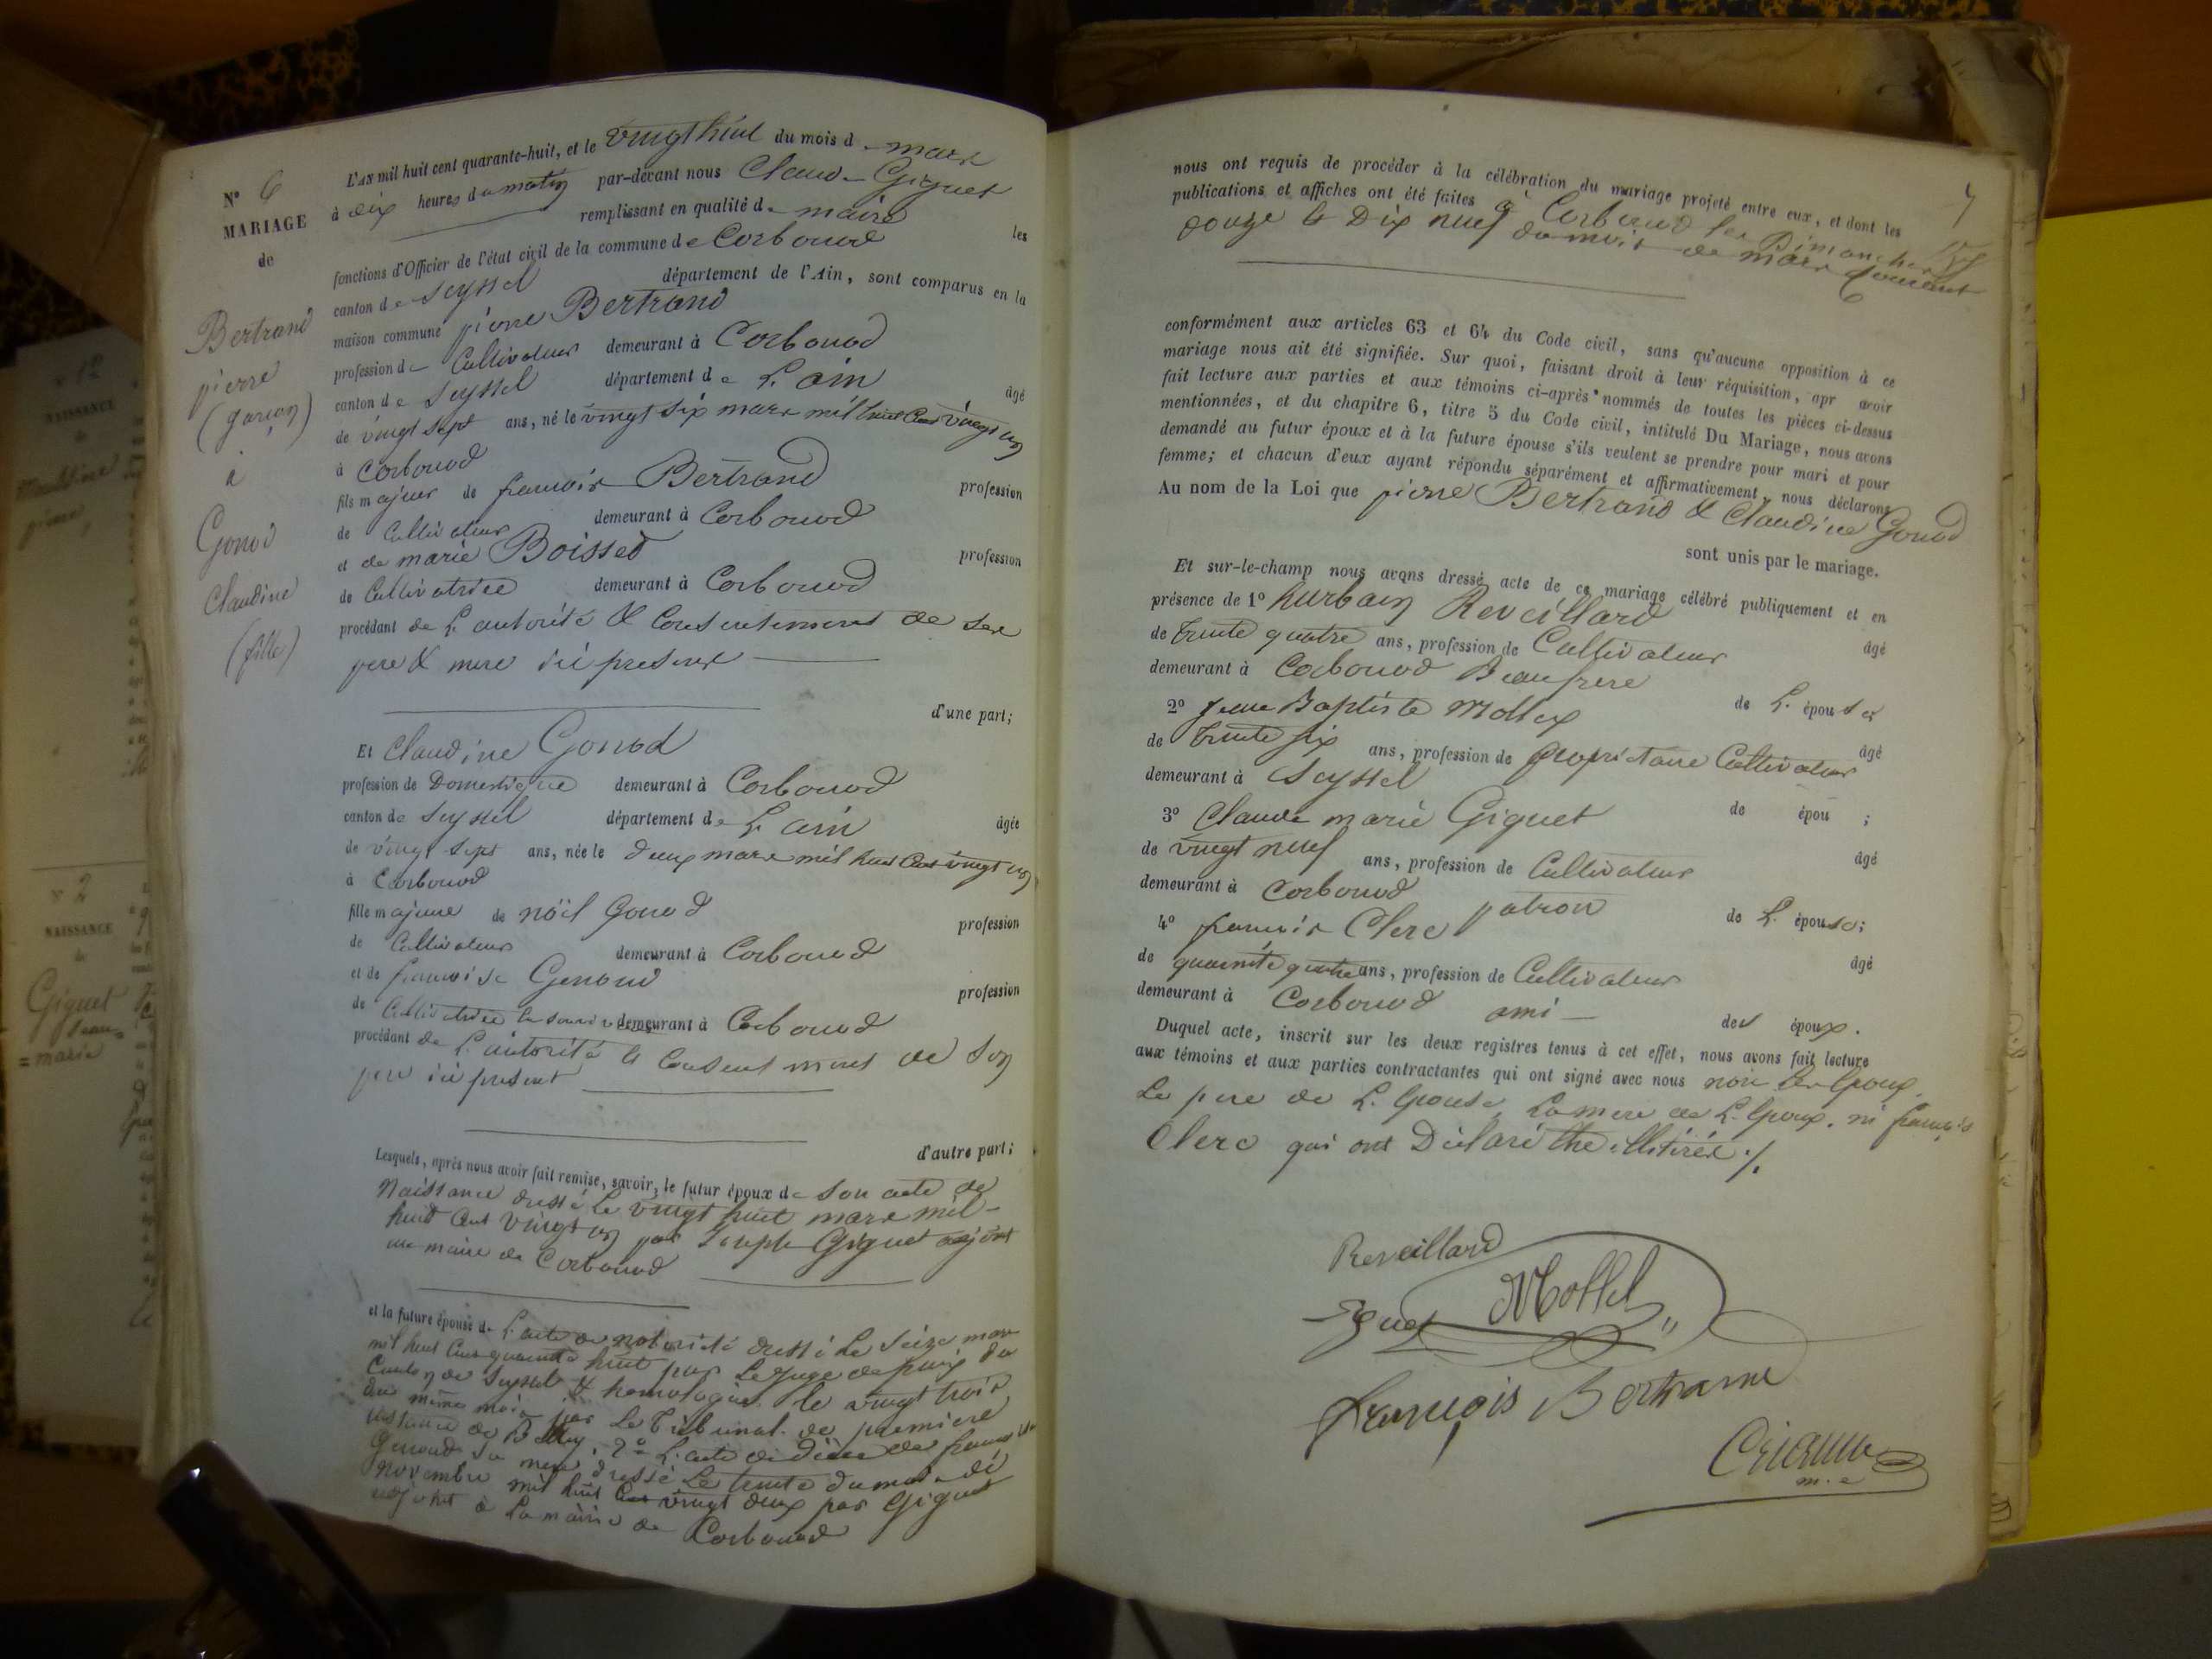 Nº 6
MARIAGE
de
Bertrand
pierre
(garçon)
à
Gonod
Claudine
(fille)
L'AN mil huit cent quarante-huit, et le vingt huit du mois de mars
à dix heures du matin par-devant nous Claude Giguet
remplissant en qualité de maire les
fonctions d'Officier de l'état civil de la commune de Corbonod
canton de Seyssel département de l'Ain, sont comparus en la
maison commune pierre Bertrand
profession de Cultivateur demeurant à Corbonod
canton de Seyssel département de L'ain âgé
de vingt sept ans, né le vingt six mars mil huit cent vingt un
à Corbonod
fils majeur de francois Bertrand profession
de Cultivateur demeurant à Corbonod
et de marie Boisset profession
de Cultivatrice demeurant à Corbonod
procédant de L'autorité & Consentement de ses
pere & mere ici present
d'une part;
Et Claudine Gonod
profession de Domestique demeurant à Corbonod
canton de Seyssel département de L'ain âgée
de vingt sept ans, née le deux mars mil huit cent vingt un
à Corbonod
fille majeure de noël Gonod profession
de Cultivateur demeurant à Corbonod
et de francoise Genoud profession
de Cultivatrice demeurant à Corbonod
procédant de L'autorité & Consentement de son
pere ici present
d'autre part;
Lesquels, après nous avoir fait remise, savoir, le futur époux de son acte de
naissance dressé le vingt huit mars mil
huit cent vingt un par Joseph Giguet adjoint
au maire de Corbonod
et la future épouse de L'acte de notorieté dressé le seize mars
mil huit cent quarante huit par le juge de paix du
Canton de Seyssel & homologué le vingt trois
du même mois par le Tribunal de premiere
instance de Belley, 2º L'acte de décès de francoise
Genoud sa mere dressé le trente du mois de
novembre mil huit cent vingt deux par Giguet
adjoint à la mairie de Corbonod
nous ont requis de procéder à la célébration du mariage projeté entre eux, et dont les
publications et affiches ont été faites à Corbonod les Dimanches
douze & Dix neuf du mois de mars courant
conformément aux articles 63 et 64 du Code civil, sans qu'aucune opposition à ce
mariage nous ait été signifiée. Sur quoi, faisant droit à leur réquisition, apr avoir
fait lecture aux parties et aux témoins ci-après nommés de toutes les pièces ci-dessus
mentionnées, et du chapitre 6, titre 5 du Code civil, intitulé Du Mariage, nous avons
demandé au futur époux et à la future épouse s'ils veulent se prendre pour mari et pour
femme; et chacun d'eux ayant répondu séparément et affirmativement, nous déclarons
Au nom de la Loi que pierre Bertrand & Claudine Gonod
sont unis par le mariage.
Et sur-le-champ nous avons dressé acte de ce mariage célébré publiquement et en
présence de 1º hurbain Reveillard âgé
de trente quatre ans, profession de Cultivateur
demeurant à Corbonod Beaufrere de L'épouse
2º Jean Baptiste Mollex âgé
de trente six ans, profession de proprietaire Cultivateur
demeurant à Seyssel de épou ;
3º Claude marie Giguet âgé
de vingt neuf ans, profession de Cultivateur
demeurant à Corbonod patron de L'épouse;
4º francois Clerc âgé
de quarante quatre ans, profession de Cultivateur
demeurant à Corbonod ami des époux.
Duquel acte, inscrit sur les deux registres tenus à cet effet, nous avons fait lecture
aux témoins et aux parties contractantes qui ont signé avec nous non les Epoux,
Le pere de L'Epouse, La mere de L'Epoux, ni francois
Clerc qui ont Déclaré être illitérés ./.
Reveillard
Mollel
Giguet
François Bertrand